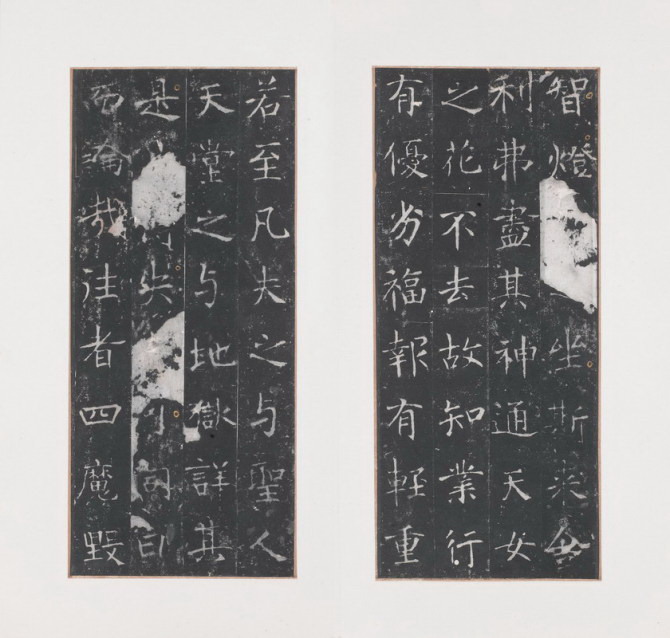 智燈一坐斯来舍
利弗盡其神通天女
之花不去故知業行
有優劣福報有輕重
若至凡夫之与聖人
天堂之与地獄詳其
是失可同日
而論哉往者四魔毀